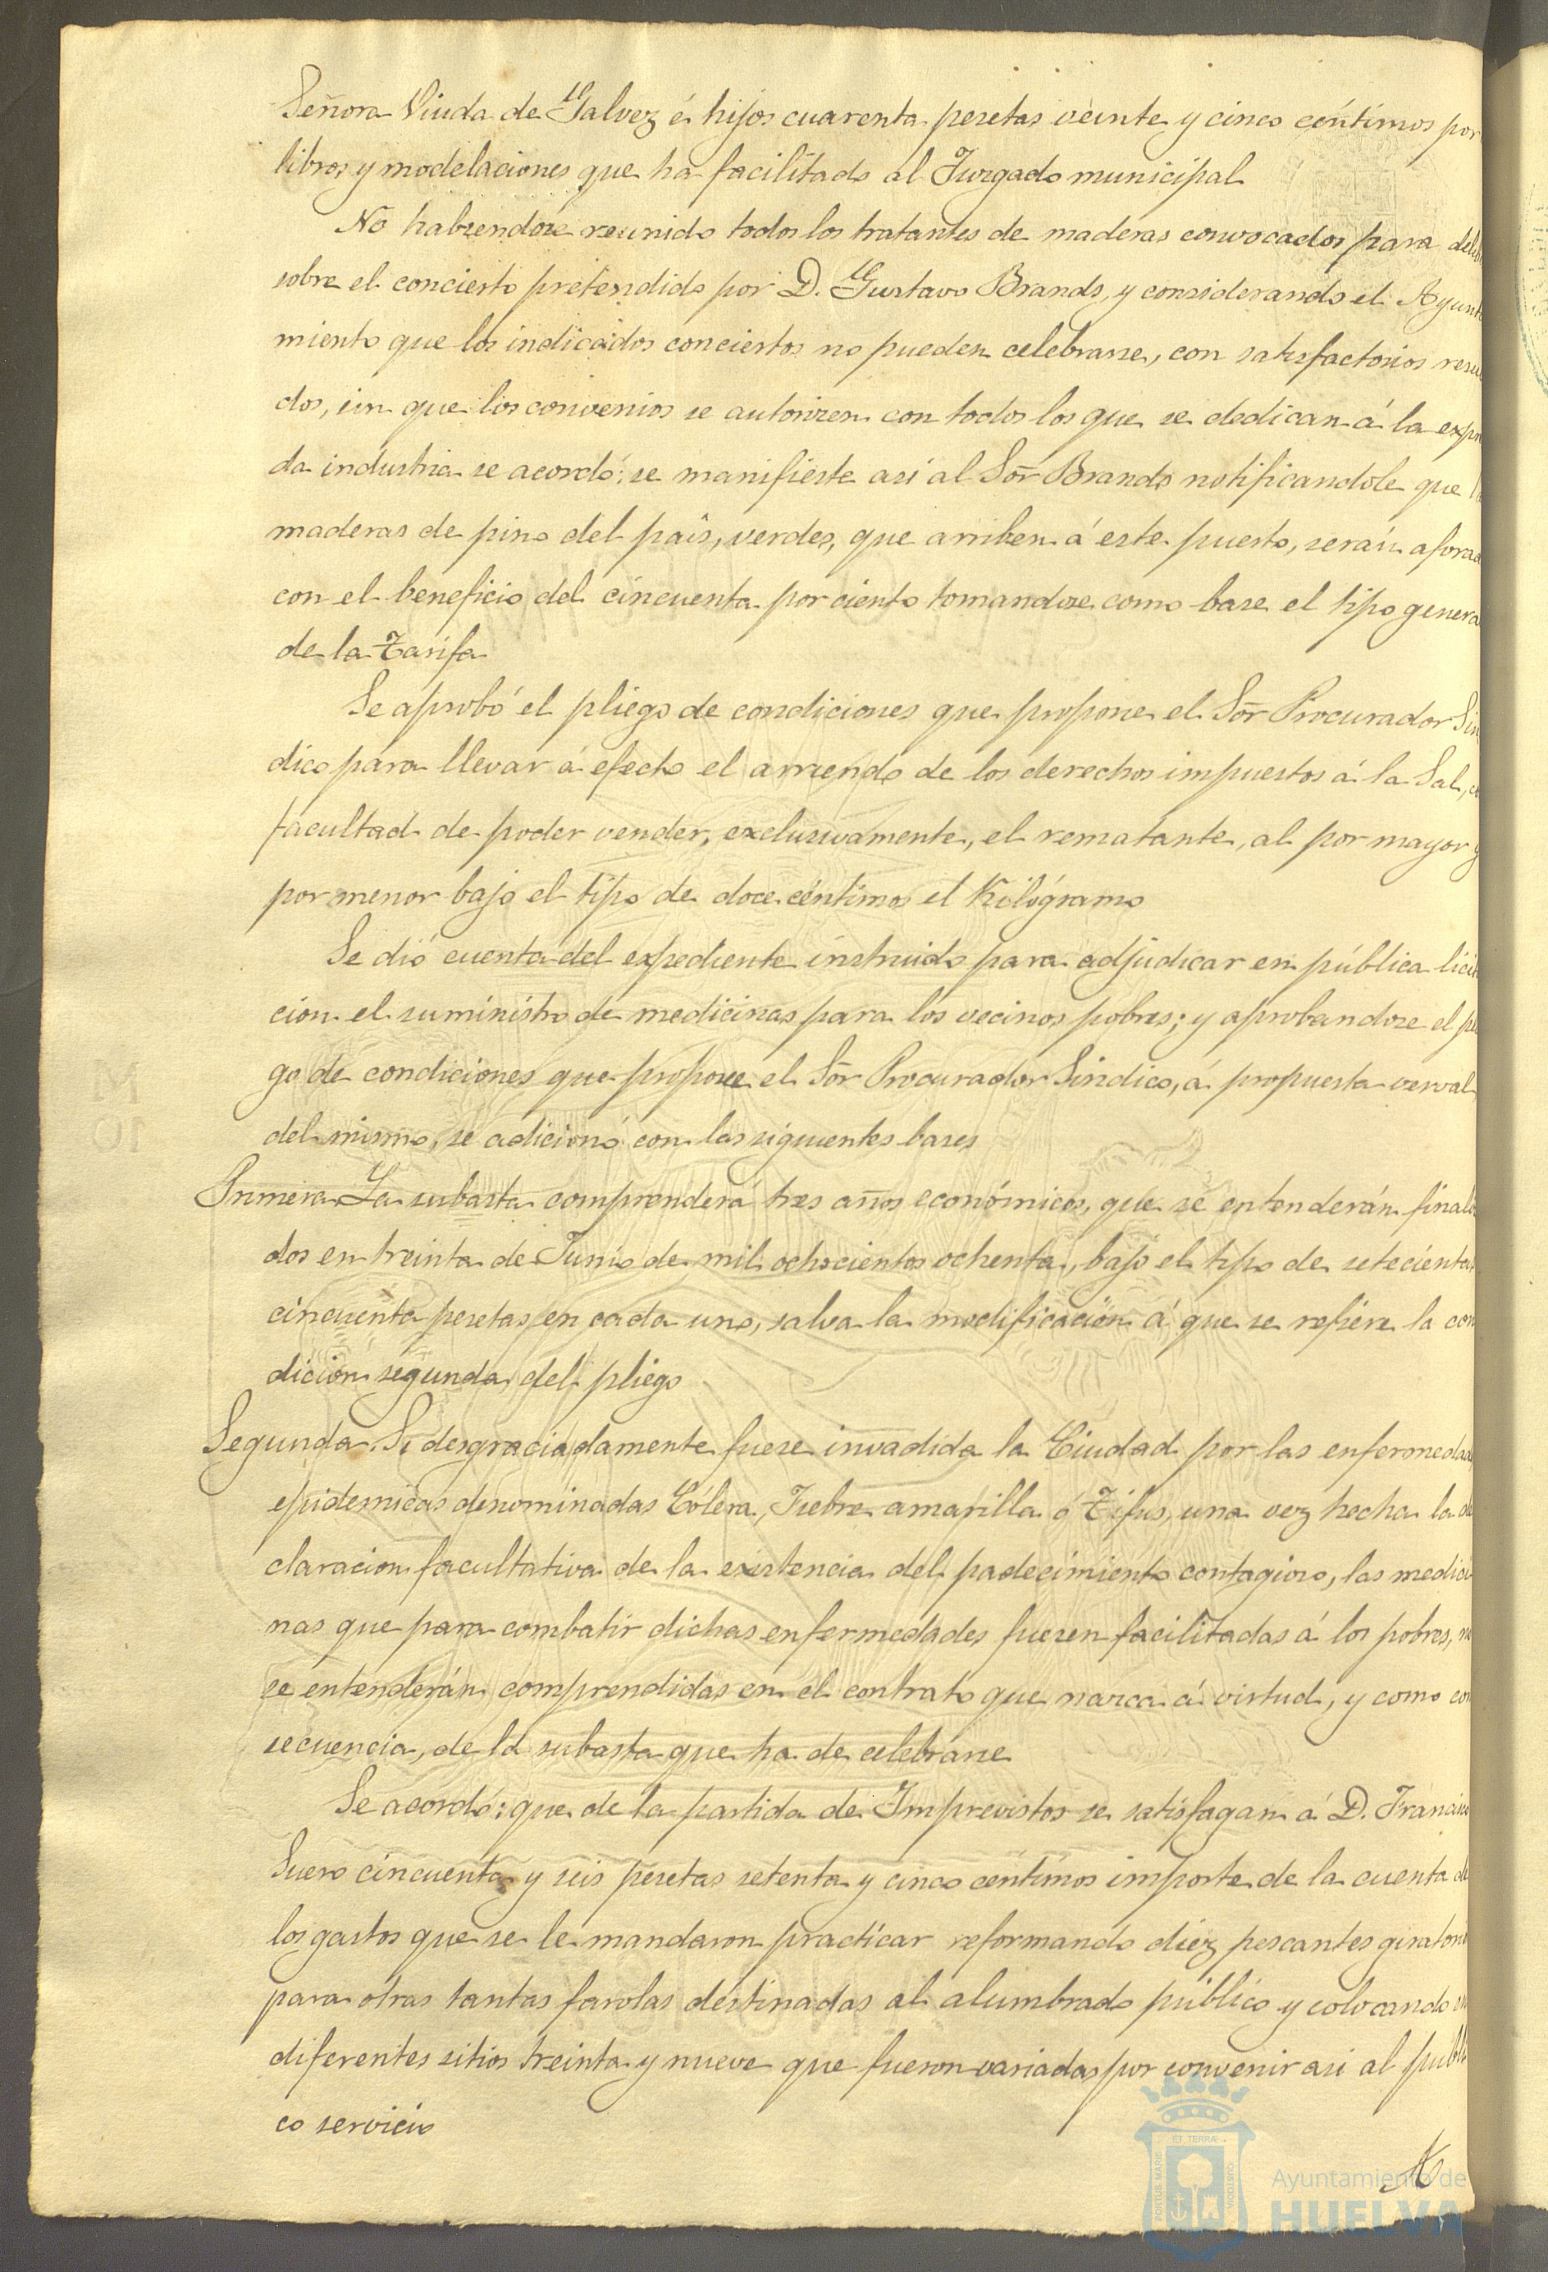 Señora Viuda de Galvez é hijos cuarenta pesetas veinte y cinco céntimos por
libros y modelaciones que ha facilitado al Juzgado municipal
No habiendose reunido todos los tratantes de maderas convocados para delib
sobre el concierto pretendido por D. Gustavo Brands, y considerando el Ayunta
miento que los indicados conciertos no pueden celebrarse, con satisfactorios resul
dos, sin que los convenios se autorizen con todos los que se dedican á la expre
da industria se acordó: se manifieste asi al Sor Brands notificandole que l
maderas de pino del pais, verdes, que arriben á este puerto, serán aforad
con el beneficio del cincuenta por ciento tomandose como base el tipo genera
de la Tarifa
Se aprobó el pliego de condiciones que propone el Sor Procurador Sin
dico para llevar á efecto el arriendo de los derechos impuestos á la Sal, c
facultad de poder vender, exclusivamente, el rematante, al por mayor y
por menor bajo el tipo de doce céntimos el Kilógramo
Se dió cuenta del expediente instruido para adjudicar en pública licit
cion el suministro de medicinas para los vecinos pobres; y aprobandose el pl
go de condiciones que propone el Sor Procurador Sindico, á propuesta verval
del mismo, se adicionó con las siguientes bases
Primera La subasta comprenderá tres años económicos, que se entenderán finali
dos en treinta de Junio de mil ochocientos ochenta, bajo el tipo de setecientas
cincuenta pesetas en cada uno, salva la modificacion á que se refiere la con
dicion segunda del pliego
Segunda. Si desgraciadamente fuese invadida la Ciudad por las enfermedad
epidemicas denominadas Cólera, Fiebre amarilla ó Tifus, una vez hecha la de
claracion facultativa de la existencia del padecimiento contagioso, las medici
nas que para combatir dichas enfermedades fuesen facilitadas á los pobres, no
se entenderán comprendidas en el contrato que nazca á virtud, y como con
secuencia, de la subasta que ha de celebrarse
Se acordó: que de la partida de Imprevistos se satisfagan á D. Francisco
Suero cincuenta y seis pesetas setenta y cinco céntimos importe de la cuenta de
los gastos que se le mandaron practicar reformando diez pescantes giratori
para otras tantas farolas destinadas al alumbrado público y colocando en
diferentes sitios treinta y nueve que fueron variadas por convenir asi al publi
co servicio
Ayuntamiento de
HUELVA